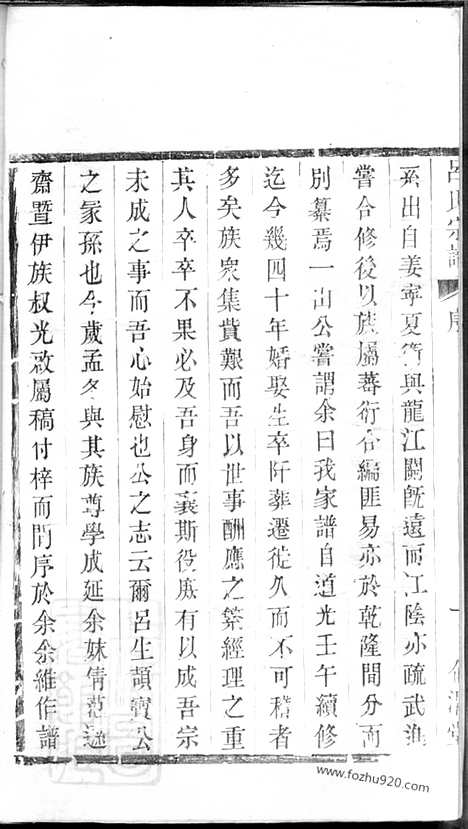 呂氏宗譜 序 一
系出自姜寧夏等與龍江關旣遠而江陰亦疏武進
嘗合修後以族屬蕃衍合編匪易亦於乾隆間分而
別纂焉一出公嘗謂余曰我家譜自道光壬午續修
迄今幾四十年婚娶生卒阡葬遷徙久而不可稽者
多矣族衆集貲艱而吾以世事酬應之繁經理之重
其人卒卒不果必及吾身而襄斯役庶有以成吾宗
未成之事而吾心始慰也公之志云爾呂生頡賓公
之冢孫也今歲孟冬與其族尊學成延余妹倩范
齋曁伊族叔光啟屬稿付梓而問序於余余維作譜
www.fozhu920.com